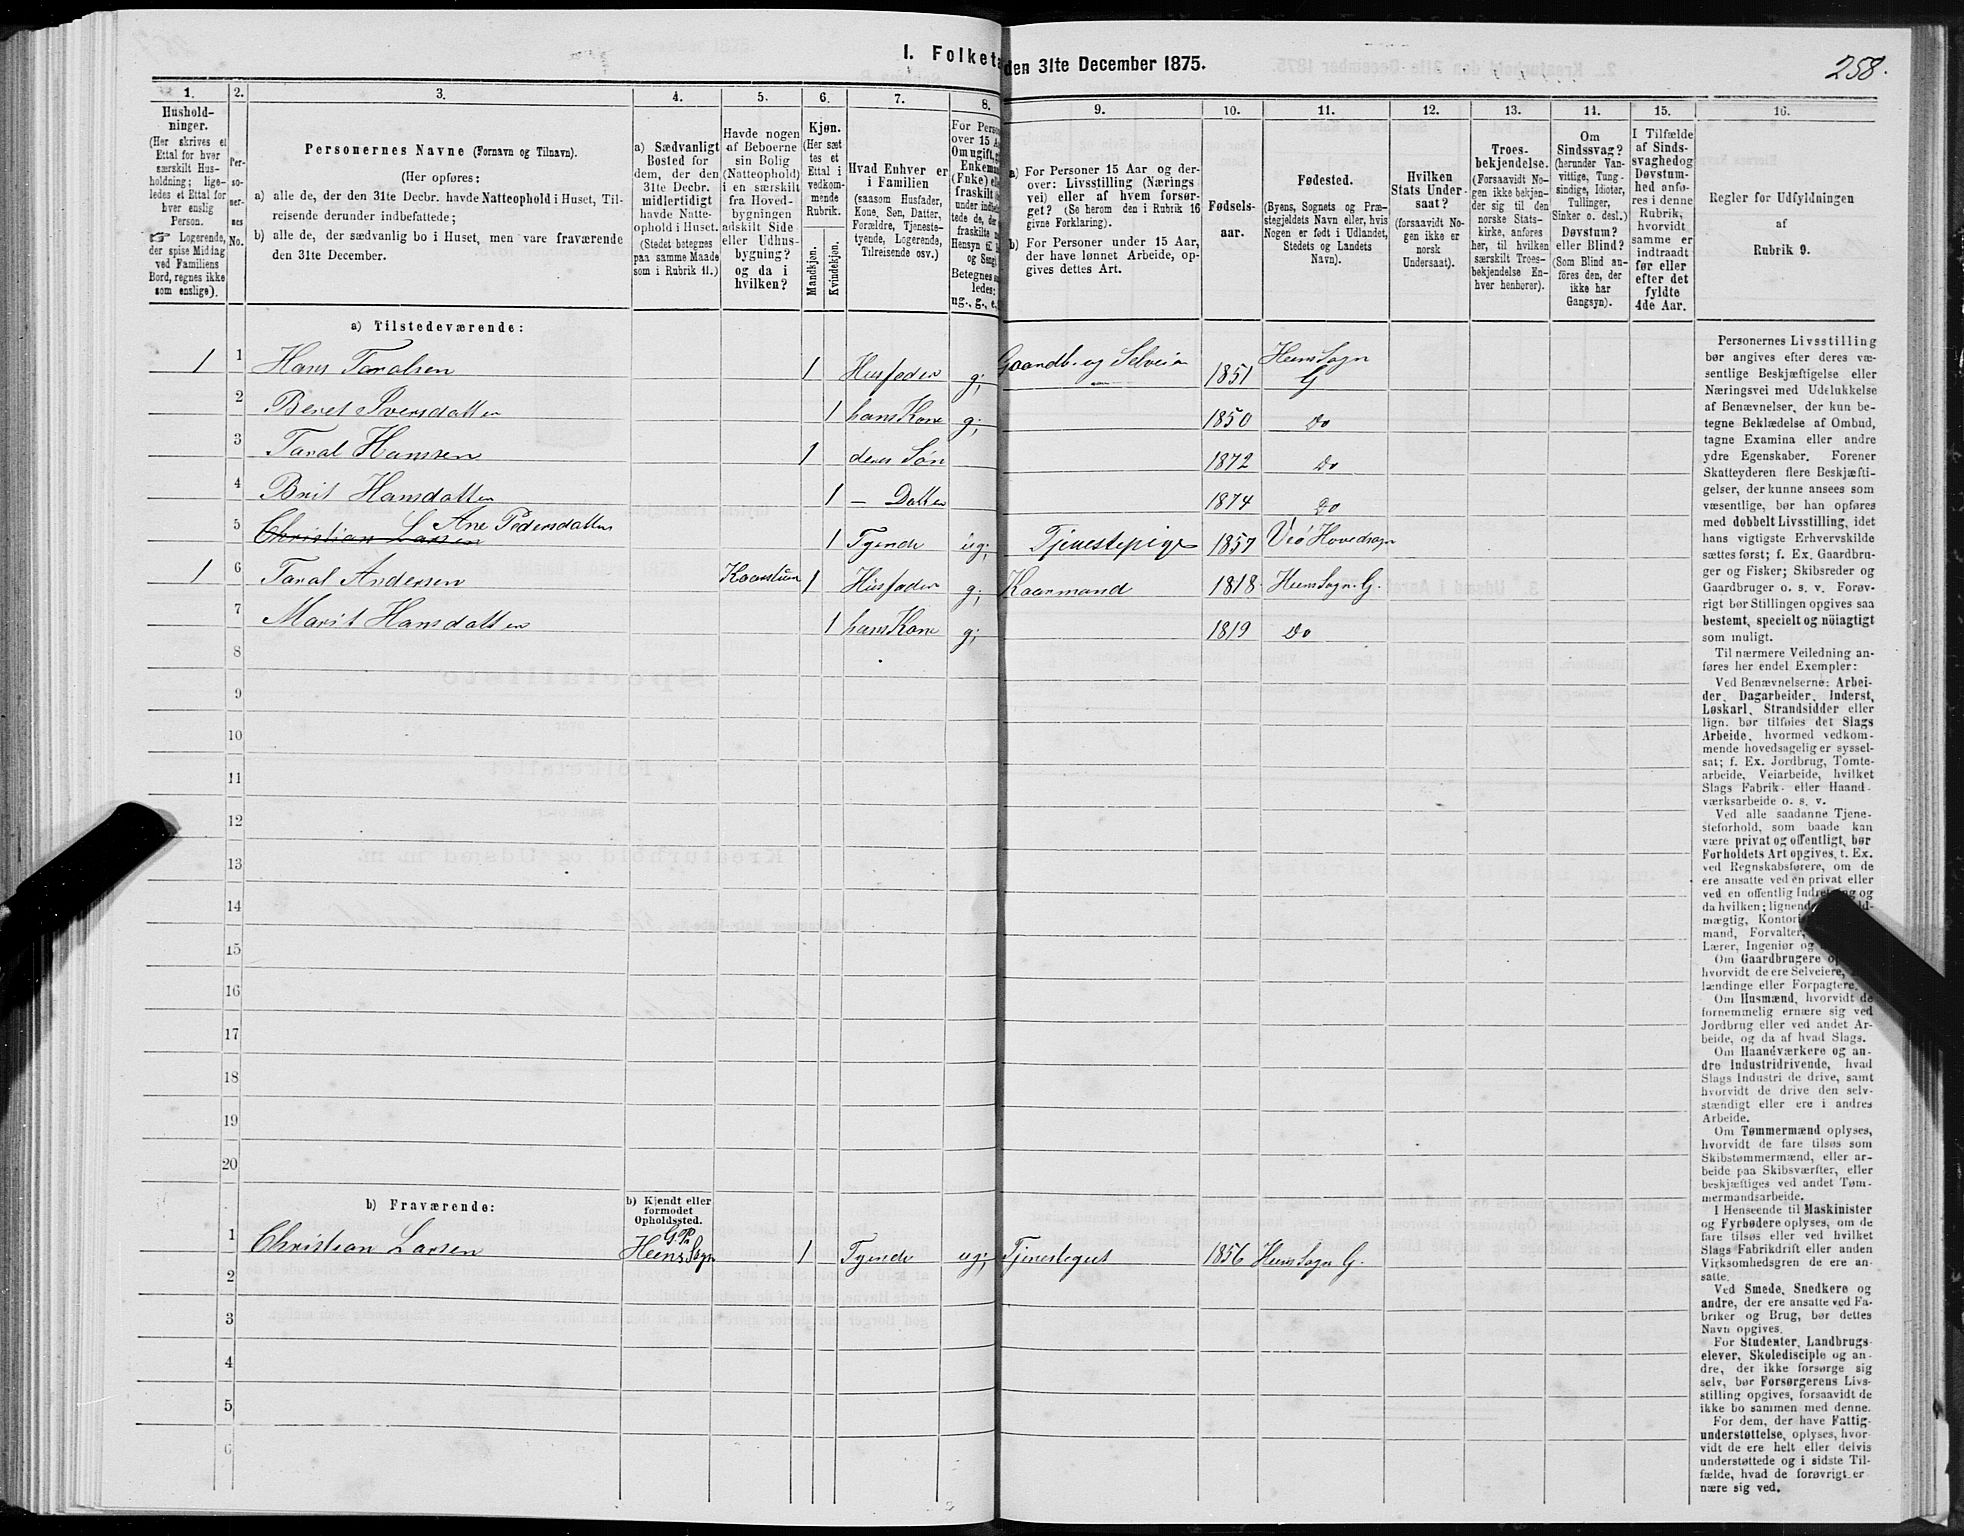 258.
I. Folketa den 31te December 1875.
1. 2. 3. 4. 5. 6. 7. 8. 9. 10. 11. 12. 13. 14. 15. 16.
Hushold-
ninger.
(Her skrives et
Ettal for hver
særskilt Hus-
holdning; lige-
ledes et Ettal for
hver enslig
Person.
☞ Logerende,
der spise Middag
ved Familiens
Bord, regnes ikke
som enslige).
Per-
so-
ner-
nes
No.
Personernes Navne (Fornavn og Tilnavn).
(Her opføres:
a) alle de, der den 31te Decbr. havde Natteophold i Huset, Til-
reisende derunder indbefattede;
b) alle de, der sædvanlig bo i Huset, men vare fraværende
den 31te December.
a) Sædvanligt
Bosted for
dem, der den
31te Decbr.
midlertidigt
havde Natte-
ophold i Huset.
(Stedet betegnes
paa samme Maade
som i Rubrik 11.)
Havde nogen
af Beboerne
sin Bolig
(Natteophold)
i en særskilt
fra Hoved-
bygningen
adskilt Side-
eller Udhus-
bygning?
og da i
hvilken?
Kjøn.
(Her sæt-
tes et
Ettal i
vedkom-
mende
Rubrik.
Mandkjøn.
Kvindekjøn.
Hvad Enhver er
i Familien
(saasom Husfader,
Kone, Søn, Datter,
Forældre, Tjeneste-
tyende, Logerende,
Tilreisende osv.)
For Perso
over 15 A
Om ugift, g
Enkema
(Fnke) el
fraskilt
under indbe
tede de, de
fraskilte
Hensyn til
og Seng
Betegnes s
ledes:
ug., g., e,
a) For Personer 15 Aar og der-
over: Livsstilling (Nærings-
vei) eller af hvem forsør-
get? (Se herom den i Rubrik 16
givne Forklaring).
b) For Personer under 15 Aar,
der have lønnet Arbeide, op-
gives dettes Art.
Fødsels-
aar.
Fødested.
(Byens, Sognets og Præ-
stegjeldets Navn eller, hvis
Nogen er født i Udlandet,
Stedets og Landets
Navn).
Hvilken
Stats Under-
saat?
(forsaavidt No-
gen ikke er
norsk
Undersaat).
Troes-
bekjendelse.
(Forsaavidt No-
gen ikke bekjen-
der sig til den
norske Stats-
kirke, anføres
her, til hvilken
særskilt Troes-
bekjendelse En-
hver henhører).
Om
Sindssvag?
(herunder Van-
vittige, Tung-
sindige, Idioter,
Tullinger,
Sinker o. desl.)
Døvstum?
eller Blind?
(Som Blind an-
føres den, der
ikke har
Gangsyn).
I Tilfælde
af Sinds-
svaghed og
Døvstum-
hed anfø-
res i denne
Rubrik,
hvorvidt
samme er
indtraadt
før eller
efter det
fyldte
4de Aar.
Regler for Udfyldningen
af
Rubrik 9.
a) Tilstedeværende:
1 1 Hans Taralsen 1 Husfader g; Gaardb. og Selveier 1851 Heens Sogn G
2 Beret Iversdatter 1 hans Kone g; 1850 Do
3 Taral Hansen 1 deres Søn 1872 Do
4 Brit Hansdatter 1 — Datter 1874 Do
5 Christian Larsen Ane Pedersdatter 1 Tyende ug; Tjenestepige 1857 Veø Hovedsogn
1 6 Taral Andersen Kaarstuen 1 Husfader g; Kaarmand 1818 Heens Sogn G.
7 Marit Hansdatter 1 hans Kone g; 1819 Do
8
9
10
11
12
13
14
15
16
17
18
19
20
b) Fraværende:
b) Kjendt eller
formodet
Opholdssted.
G. P.
1 Christian Larsen Heens Sogn 1 Tyende ug; Tjenestegut 1856 Heens Sogn G.
2
3
4
5
6
Personernes Livsstilling
bør angives efter deres væ-
sentlige Beskjæftigelse eller
Næringsvei med Udelukkelse
af Benævnelser, der kun be-
tegne Beklædelse af Ombud,
tagne Examina eller andre
ydre Egenskaber. Forener
Skatteyderen flere Beskjæfti-
gelser, der kunne ansees som
væsentlige, bør han opføres
med dobbelt Livsstilling, idet
hans vigtigste Erhvervskilde
sættes først; f. Ex. Gaardbru-
ger og Fisker; Skibsreder og
Gaardbruger o. s. v. Forøv-
rigt bør Stillingen opgives saa
bestemt, specielt og nöiagtigt
som muligt.
Til nærmere Veiledning an-
føres her endel Exempler:
Ved Benævnelserne: Arbei-
der, Dagarbeider, Inderst,
Løskarl, Strandsidder eller
lign. bør tilføies det Slags
Arbeide, hvormed vedkom-
mende hovedsagelig er syssel-
sat; f. Ex. Jordbrug, Tomte-
arbeide, Veiarbeide, hvilket
Slags Fabrik- eller Haand-
værksarbeide o. s. v.
Ved alle saadanne Tjene-
steforhold, som baade kan
være privat og offentligt, bør
Forholdets Art opgives, t. Ex.
ved Regnskabsførere, om de
ere ansatte ved en privat eller
ved en offentlig Indretning og
da hvilken; lignende
mægtig, Kontori
mand, Forvalter,
Lærer, Ingeniør og
Om Gaardbrugere
hvorvidt de ere Selveiere,
lændinge eller Forpagtere.
Om Husmænd, hvorvidt de
fornemmelig ernære sig ved
Jordbrug eller ved andet Ar-
beide, og da af hvad Slags.
Om Haandværkere og an-
dre Industridrivende, hvad
Slags Industri de drive, samt
hvorvidt de drive den selv-
stændigt eller ere i andres
Arbeide.
Om Tømmermænd oplyses,
hvorvidt de fare tilsøs som
Skibstømmermænd, eller ar-
beide paa Skibsværfter, eller
beskjæftiges ved andet Tøm-
mermandsarbeide.
I Henseende til Maskinister
og Fyrbødere oplyses, om de
fare tilsøs eller ved hvilket
Slags Fabrikdrift eller anden
Virksomhedsgren de ere an-
satte.
Ved Smede, Snedkere og
andre, der ere ansatte ved Fa-
briker og Brug, bør dettes
Navn opgives.
For Studenter, Landbrugs-
elever, Skoledisciple og an-
dre, der ikke forsørge sig
selv, bør Forsørgerens Livs-
stilling opgives, forsaavidt de
ikke bo sammen med denne.
For dem, der have Fattig-
understøttelse, oplyses, hvor-
vidt de ere helt eller delvis
understøttede og i sidste Til-
fælde, hvad de forøvrigt er-
nære sig ved.